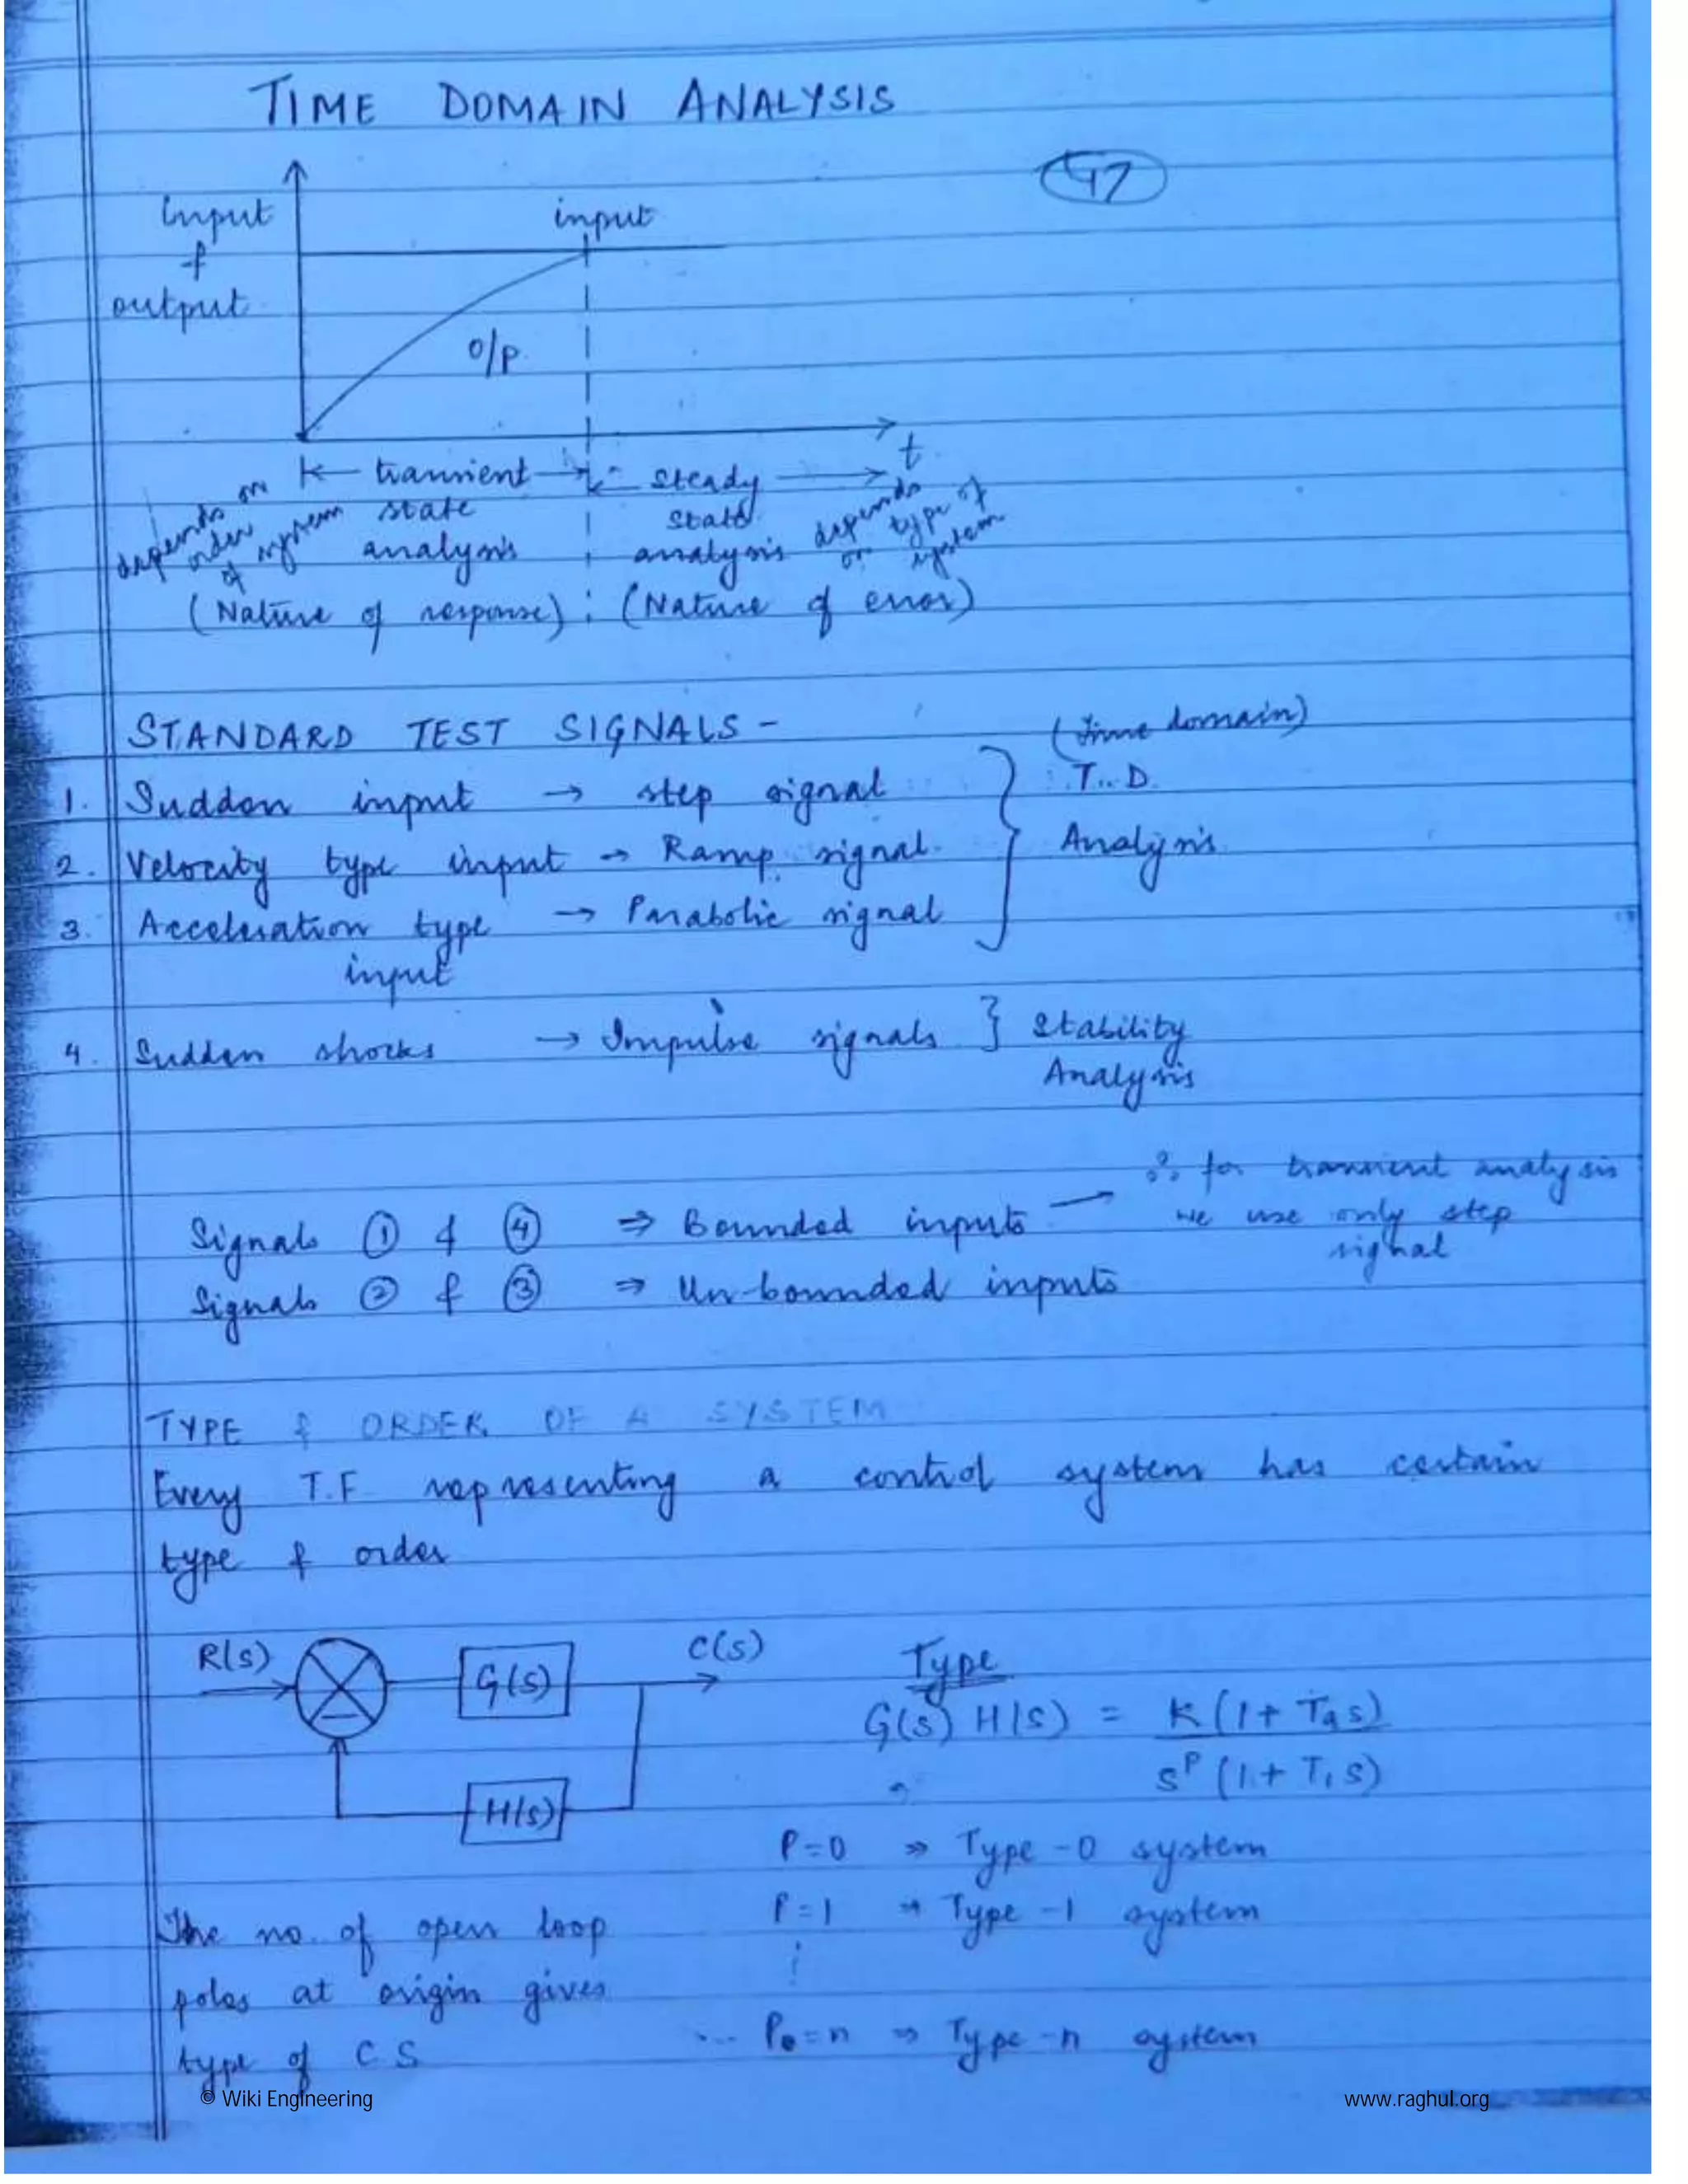 TIME DOMAIN ANALYSIS
47
input
&
output
input
O/P
t
transient
state
analysis
depends on
order
of system
steady
state
analysis
depends
on type of
system
(Nature of response) : (Nature of error)
STANDARD TEST SIGNALS -
(Time domain)
1. Sudden input → step signal
T.D.
2. Velocity type input → Ramp signal
Analysis
3. Acceleration type → Parabolic signal
input
4. Sudden shocks → Impulse signals } Stability
Analysis
∴ for transient analysis
we use only step
signal
Signals ① & ④ ⇒ Bounded inputs →
Signals ② & ③ ⇒ Un-bounded inputs
TYPE & ORDER OF A SYSTEM
Every T.F representing a control system has certain
type & order
R(s)
G(s)
C(s)
H(s)
Type
G(s) H(s) = K(1+Tas)
s^P (1+T1s)
P=0 ⇒ Type-0 system
P=1 → Type-1 system
⋮
... P=n ⇒ Type-n system
The no. of open loop
poles at origin gives
type of CS
© Wiki Engineering
www.raghul.org